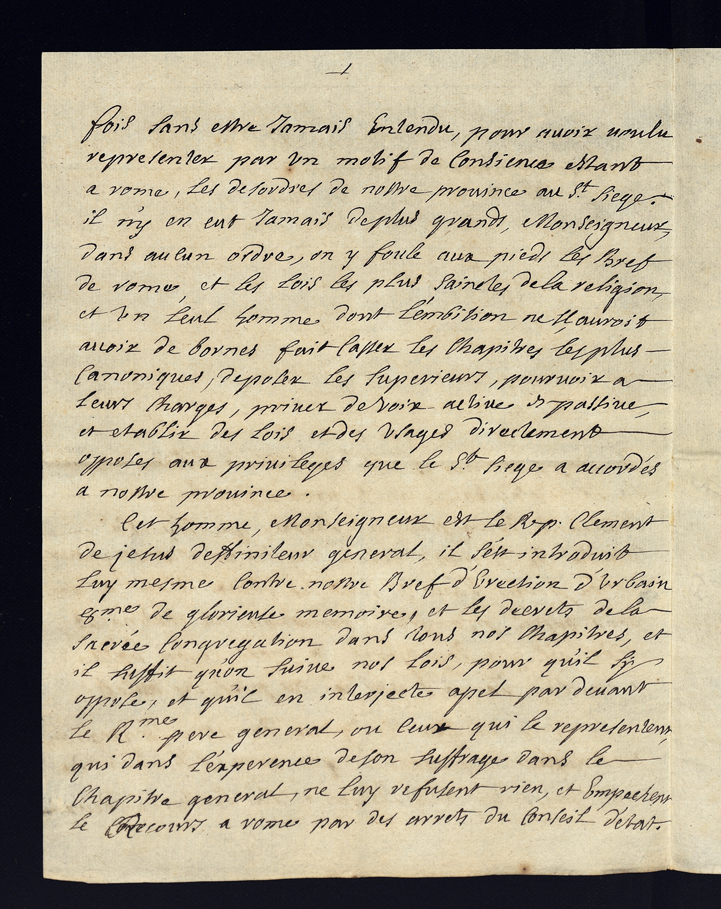 fois sans estre Jamais Entendu, pour avoir voulu
representer par un motif de Consience estant
a rome, les desordres de nostre province au St. Siege.
il n'y en eut Jamais de plus grands, Monseigneur,
dans aucun ordre, on y foule aux pieds les Bref
de rome, et les lois les plus sainctes de la religion,
et un seul homme dont l'embition ne sçauroit
avoir de bornes fait Casser les Chapitres les plus
Canoniques, deposer les superieurs, pourvoir a
leurs Charges, priver de voix active et passive,
et etablir des lois et des usages directement
opposes aux privileges que le St. siege a accordés
a nostre province.
Cet homme, Monseigneur est le R. p. Clement
de jesus deffiniteur general, il s'est introduit
luy mesme Contre nostre Bref d'Erection d'Urbain
8.me de glorieuse memoire, et les decrets de la
sacrée Congregation dans tous nos Chapitres, et
il suffit qu'on suive nos lois, pour qu'il s'y
oppose, et qu'il en interjecte apel par devant
le R.me pere general, ou Ceux qui le representent,
qui dans l'experence de son suffrage dans le
Chapitre general, ne luy refusent rien, et Empechent
le Recours a rome par des arrets du Conseil d'etat.